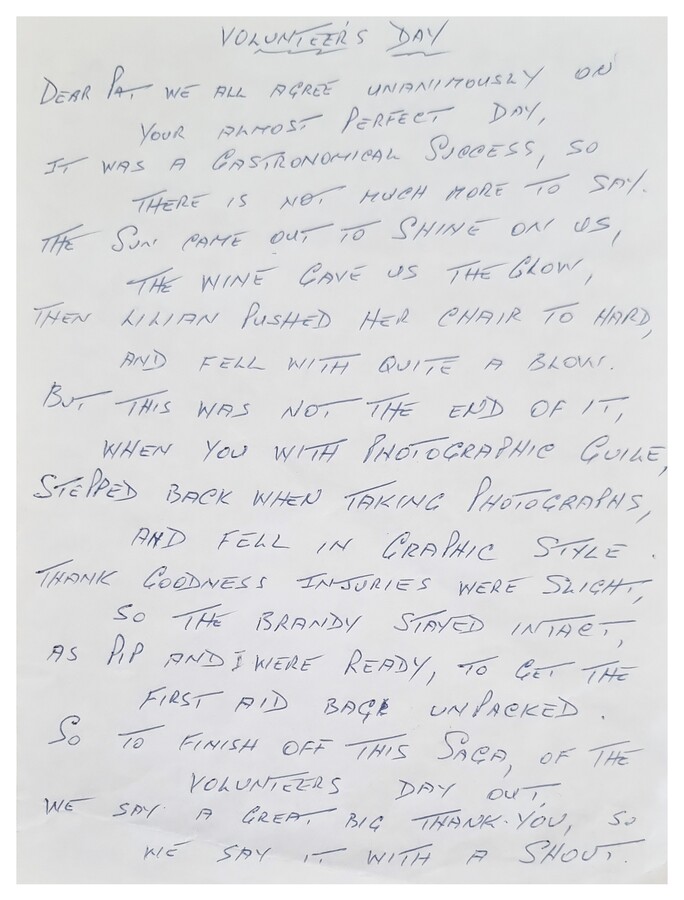 VOLUNTEER'S DAY
DEAR PAT WE ALL AGREE UNANIMOUSLY ON
YOUR ALMOST PERFECT DAY,
IT WAS A GASTRONOMICAL SUCCESS, SO
THERE IS NOT MUCH MORE TO SAY.
THE SUN CAME OUT TO SHINE ON US,
THE WINE GAVE US THE GLOW,
THEN LILIAN PUSHED HER CHAIR TO HARD,
AND FELL WITH QUITE A BLOW.
BUT THIS WAS NOT THE END OF IT,
WHEN YOU WITH PHOTOGRAPHIC GUILE,
STEPPED BACK WHEN TAKING PHOTOGRAPHS,
AND FELL IN GRAPHIC STYLE.
THANK GOODNESS INJURIES WERE SLIGHT,
SO THE BRANDY STAYED INTACT,
AS PIP AND I WERE READY, TO GET THE
FIRST AID BAG UNPACKED.
SO TO FINISH OFF THIS SAGA, OF THE
VOLUNTEERS DAY OUT,
WE SAY A GREAT BIG THANK-YOU, SO
WE SAY IT WITH A SHOUT.